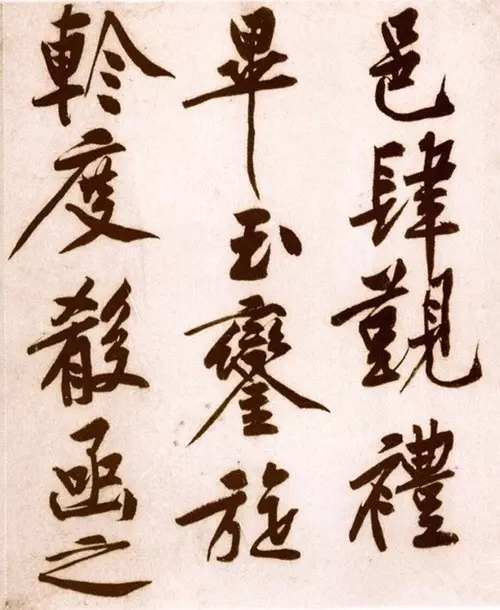 邑肆覲禮
畢玉鑾旋
軫度殽函之